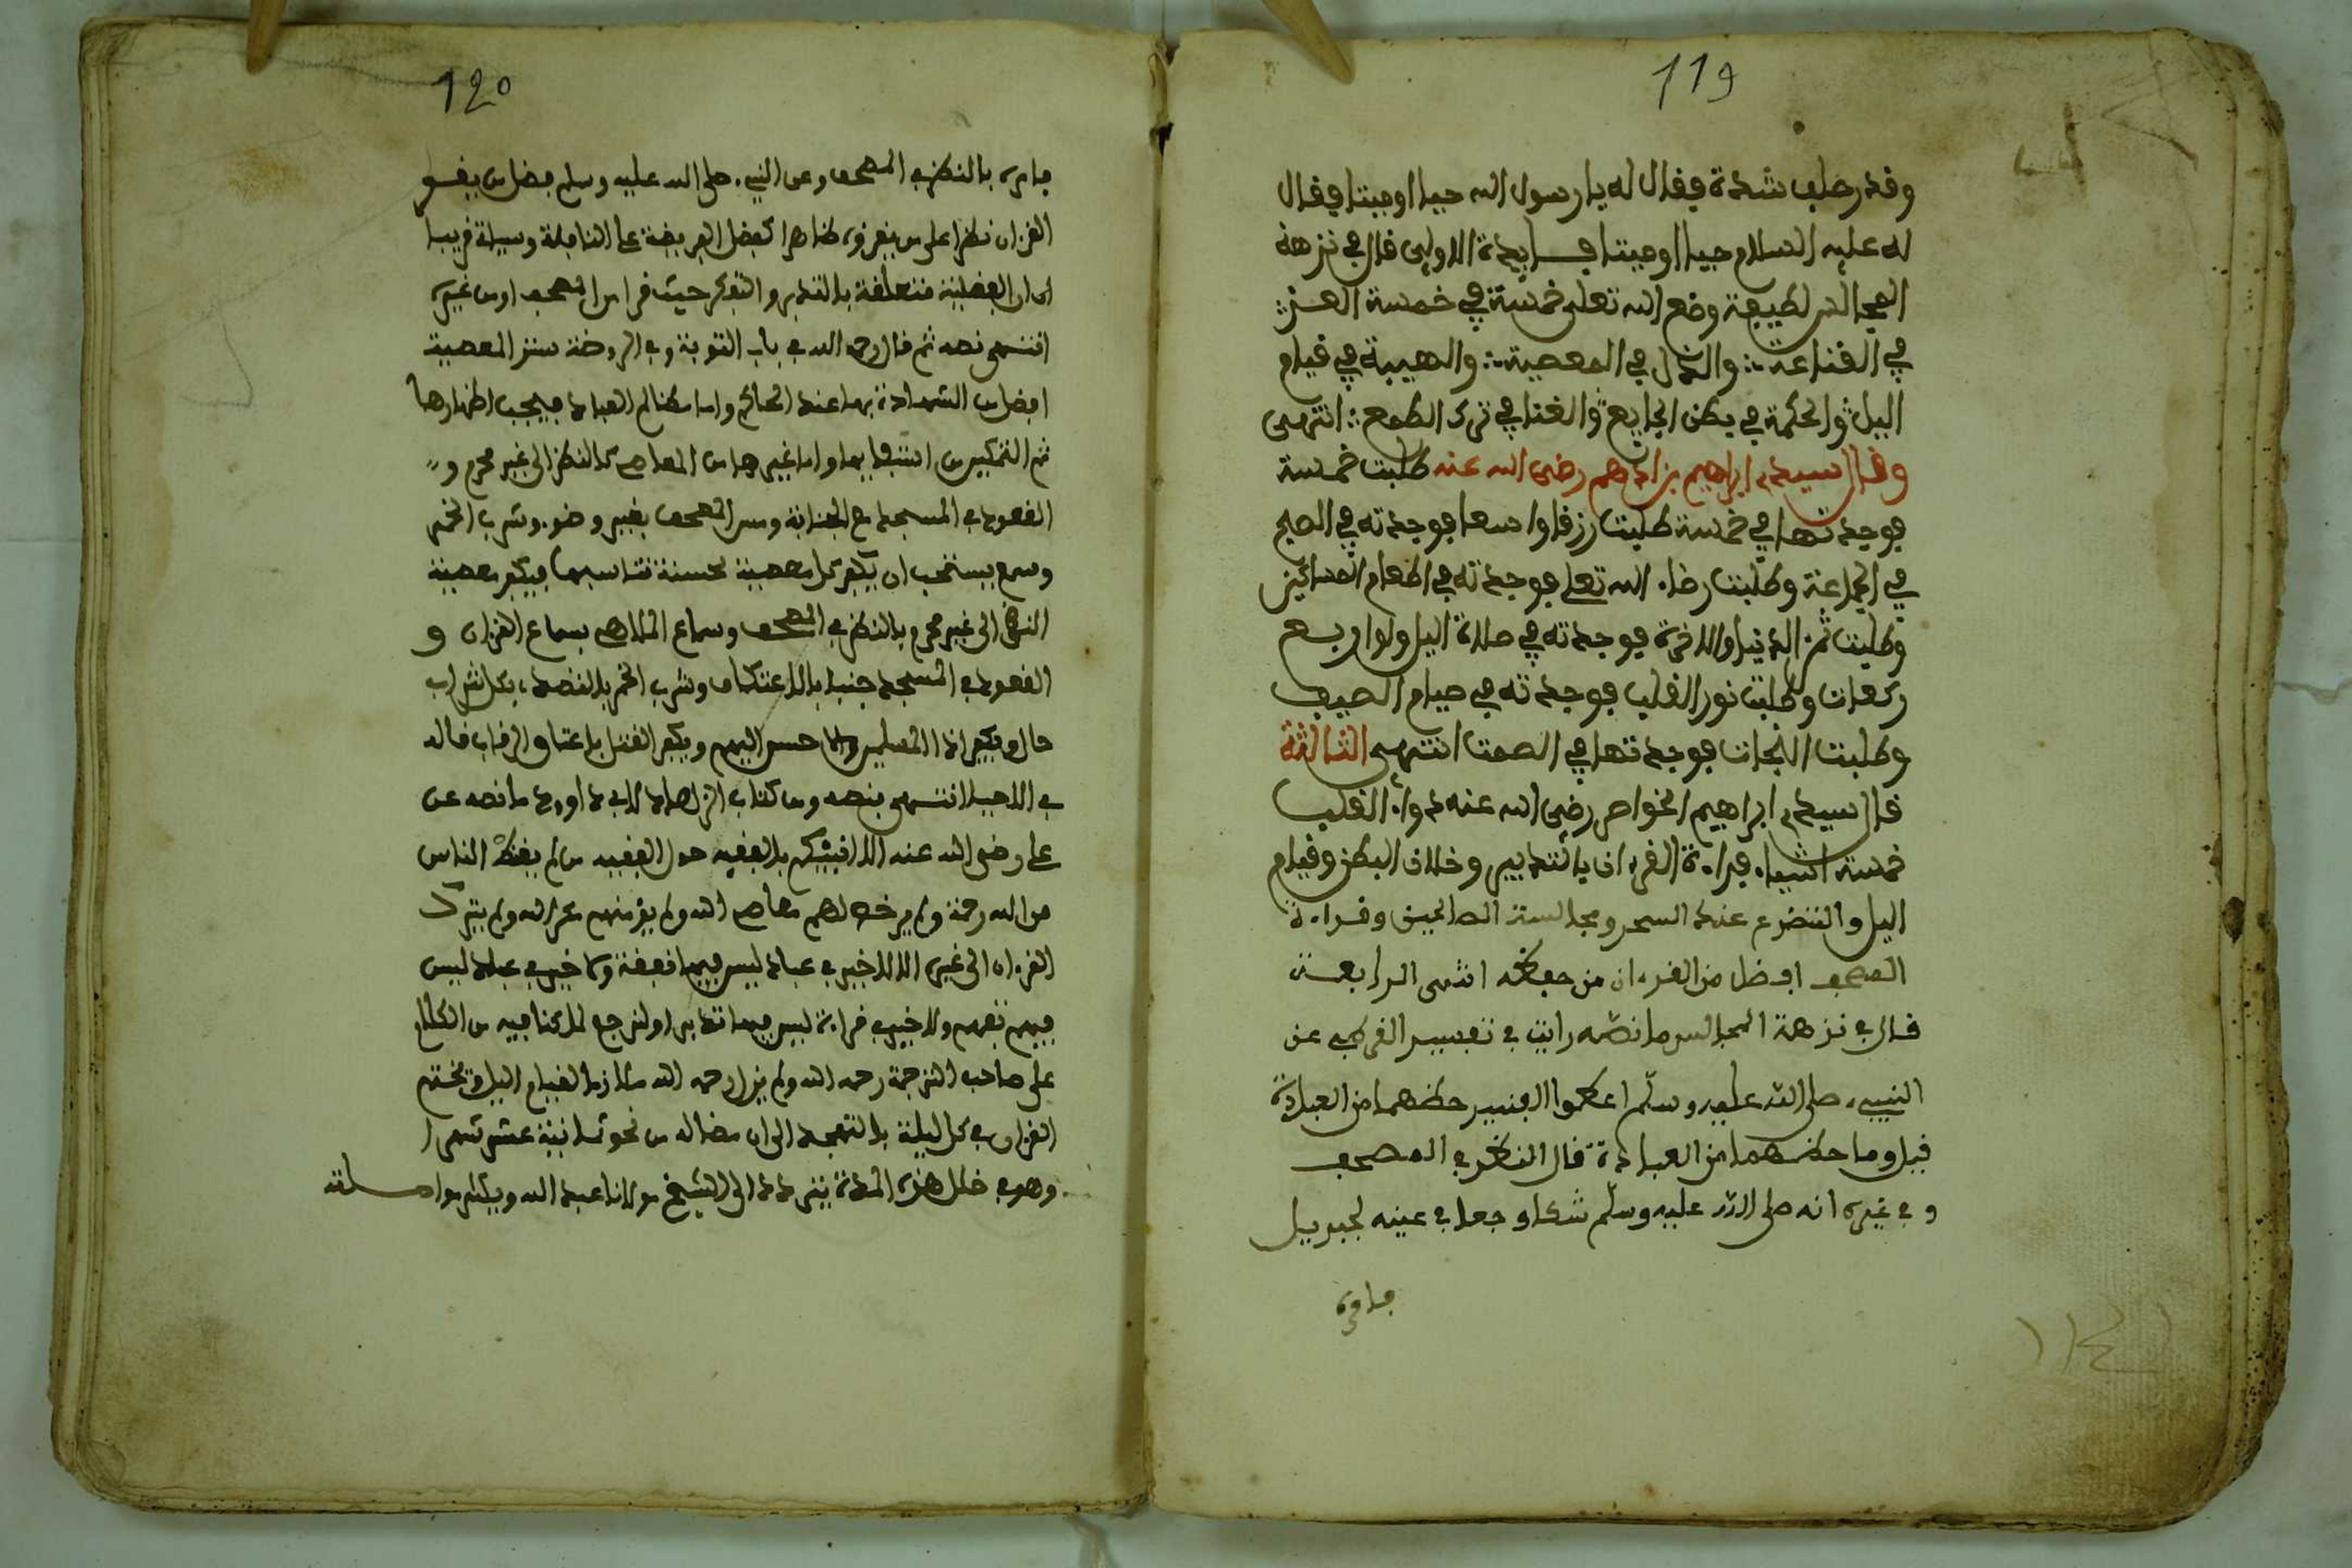 119
وقد رحلب شدة فقال له يا رسول الله حيا او ميتا فقال
له عليه السلام حيا او ميتا فايدة الاولى قال في نزهة
المجالس لطيفة وضع الله تعلى خمسة في خمسة العز
في القناعة والذل في المعصية والهيبة في قيام
اليل والحكمة في بطن الجايع والغنا في ترك الطمع انتهى
وقال سيدي ابراهيم بن ادهم رضي الله عنه طلبت خمسة
فوجدتها في خمسة طلبت رزقا واسعا فوجدته في الصبح
في الجماعة وطلبت رضاء الله تعلى فوجدته في اطعام المساكين
وطلبت ثمن الدنيا والاخرة فوجدته في صلاة اليل ولو اربع
ركعات وطلبت نور القلب فوجدته في صيام الصيف
وطلبت النجات فوجدتها في الصمت انتهى الثالثة
قال سيدي ابراهيم الخواص رضي الله عنه دواء القلب
خمسة اشياء قراءة القرءان بالتدبير وخلاف البطن وقيام
اليل والتضرع عند السحر ومجالسة الصالحين وقراءة
المصحف افضل من القرءان من حفظه انتهى الرابعة
قال في نزهة المجالس ما نصه رايت في تفسير القرطبي عن
النبيء صلى الله عليه وسلم اعطوا العينين حظهما من العبادة
قيل وما حظهما من العبادة قال النظر في المصحف
و في غيره انه صلى الله عليه وسلم شكا وجعا في عينه لجبريل
فامره
120
فامره بالنظر في المصحف وعن النبيء صلى الله عليه وسلم فضل من يقرا
القرءان نظرا على من يقرؤه ظاهرا كفضل الفريضة على النافلة وسيلة قريبا
ان ان الفضلية متعلقة بالتدبر والتفكر حيث قرا من المصحف او من غيره
انتهى نصه ثم قال رحمه الله في باب التوبة و في الروضة ستر المعصية
افضل من الشهادة بها عند الحاكم واما مظالم العباد فيجب اظهارها
ثم التمكين من استيفايها واما غيرها من المعاصي كالنظر الى غير محرم و
القعود في المسجد مع الجنابة ومس المصحف بغير وضوء وشرب الخمر
وسمع يستحب ان يكفر كل معصية بحسنة تناسبها فيكفر معصية
النظر الى غير محرم بالنظر في المصحف وسماع الملاهي بسماع القرءان و
القعود في المسجد جنبا بالاعتكاف وشرب الخمر بالتصدق بكل شراب
حلال ويكفر اذا المسلمين بالاحسن اليهم ويكفر القتل باعتاق الرقاب قاله
في الاحياء انتهى بنصه ومن كتاب الزهاد لابي داوود ما نصه عن
علي رضي الله عنه الا انبئكم بالفقيه حق الفقيه من لم يقنط الناس
من الله رحمة ولم يرخص لهم معاصي الله ولم يؤمنهم مكر الله ولم يترك
القرءان الى غيره الا لا خير في عباد ليس فيها تفقه ولا خير في عباد ليس
فيهم تفهم ولا خير في قراءة ليس فيها تدبر اولنرجع لما كنا فيه من الكلام
على صاحب الترجمة رحمه الله ولم يزل رحمه الله ملازما لقيام اليل ويختم
القرءان في كل ليلة بالتهجد الى ان مضا له من نحو ثمانية عشر شهرا
وهو في خلل هذه المدة يتردد الى الشيخ مولانا عبد الله ويكثر مواصلته